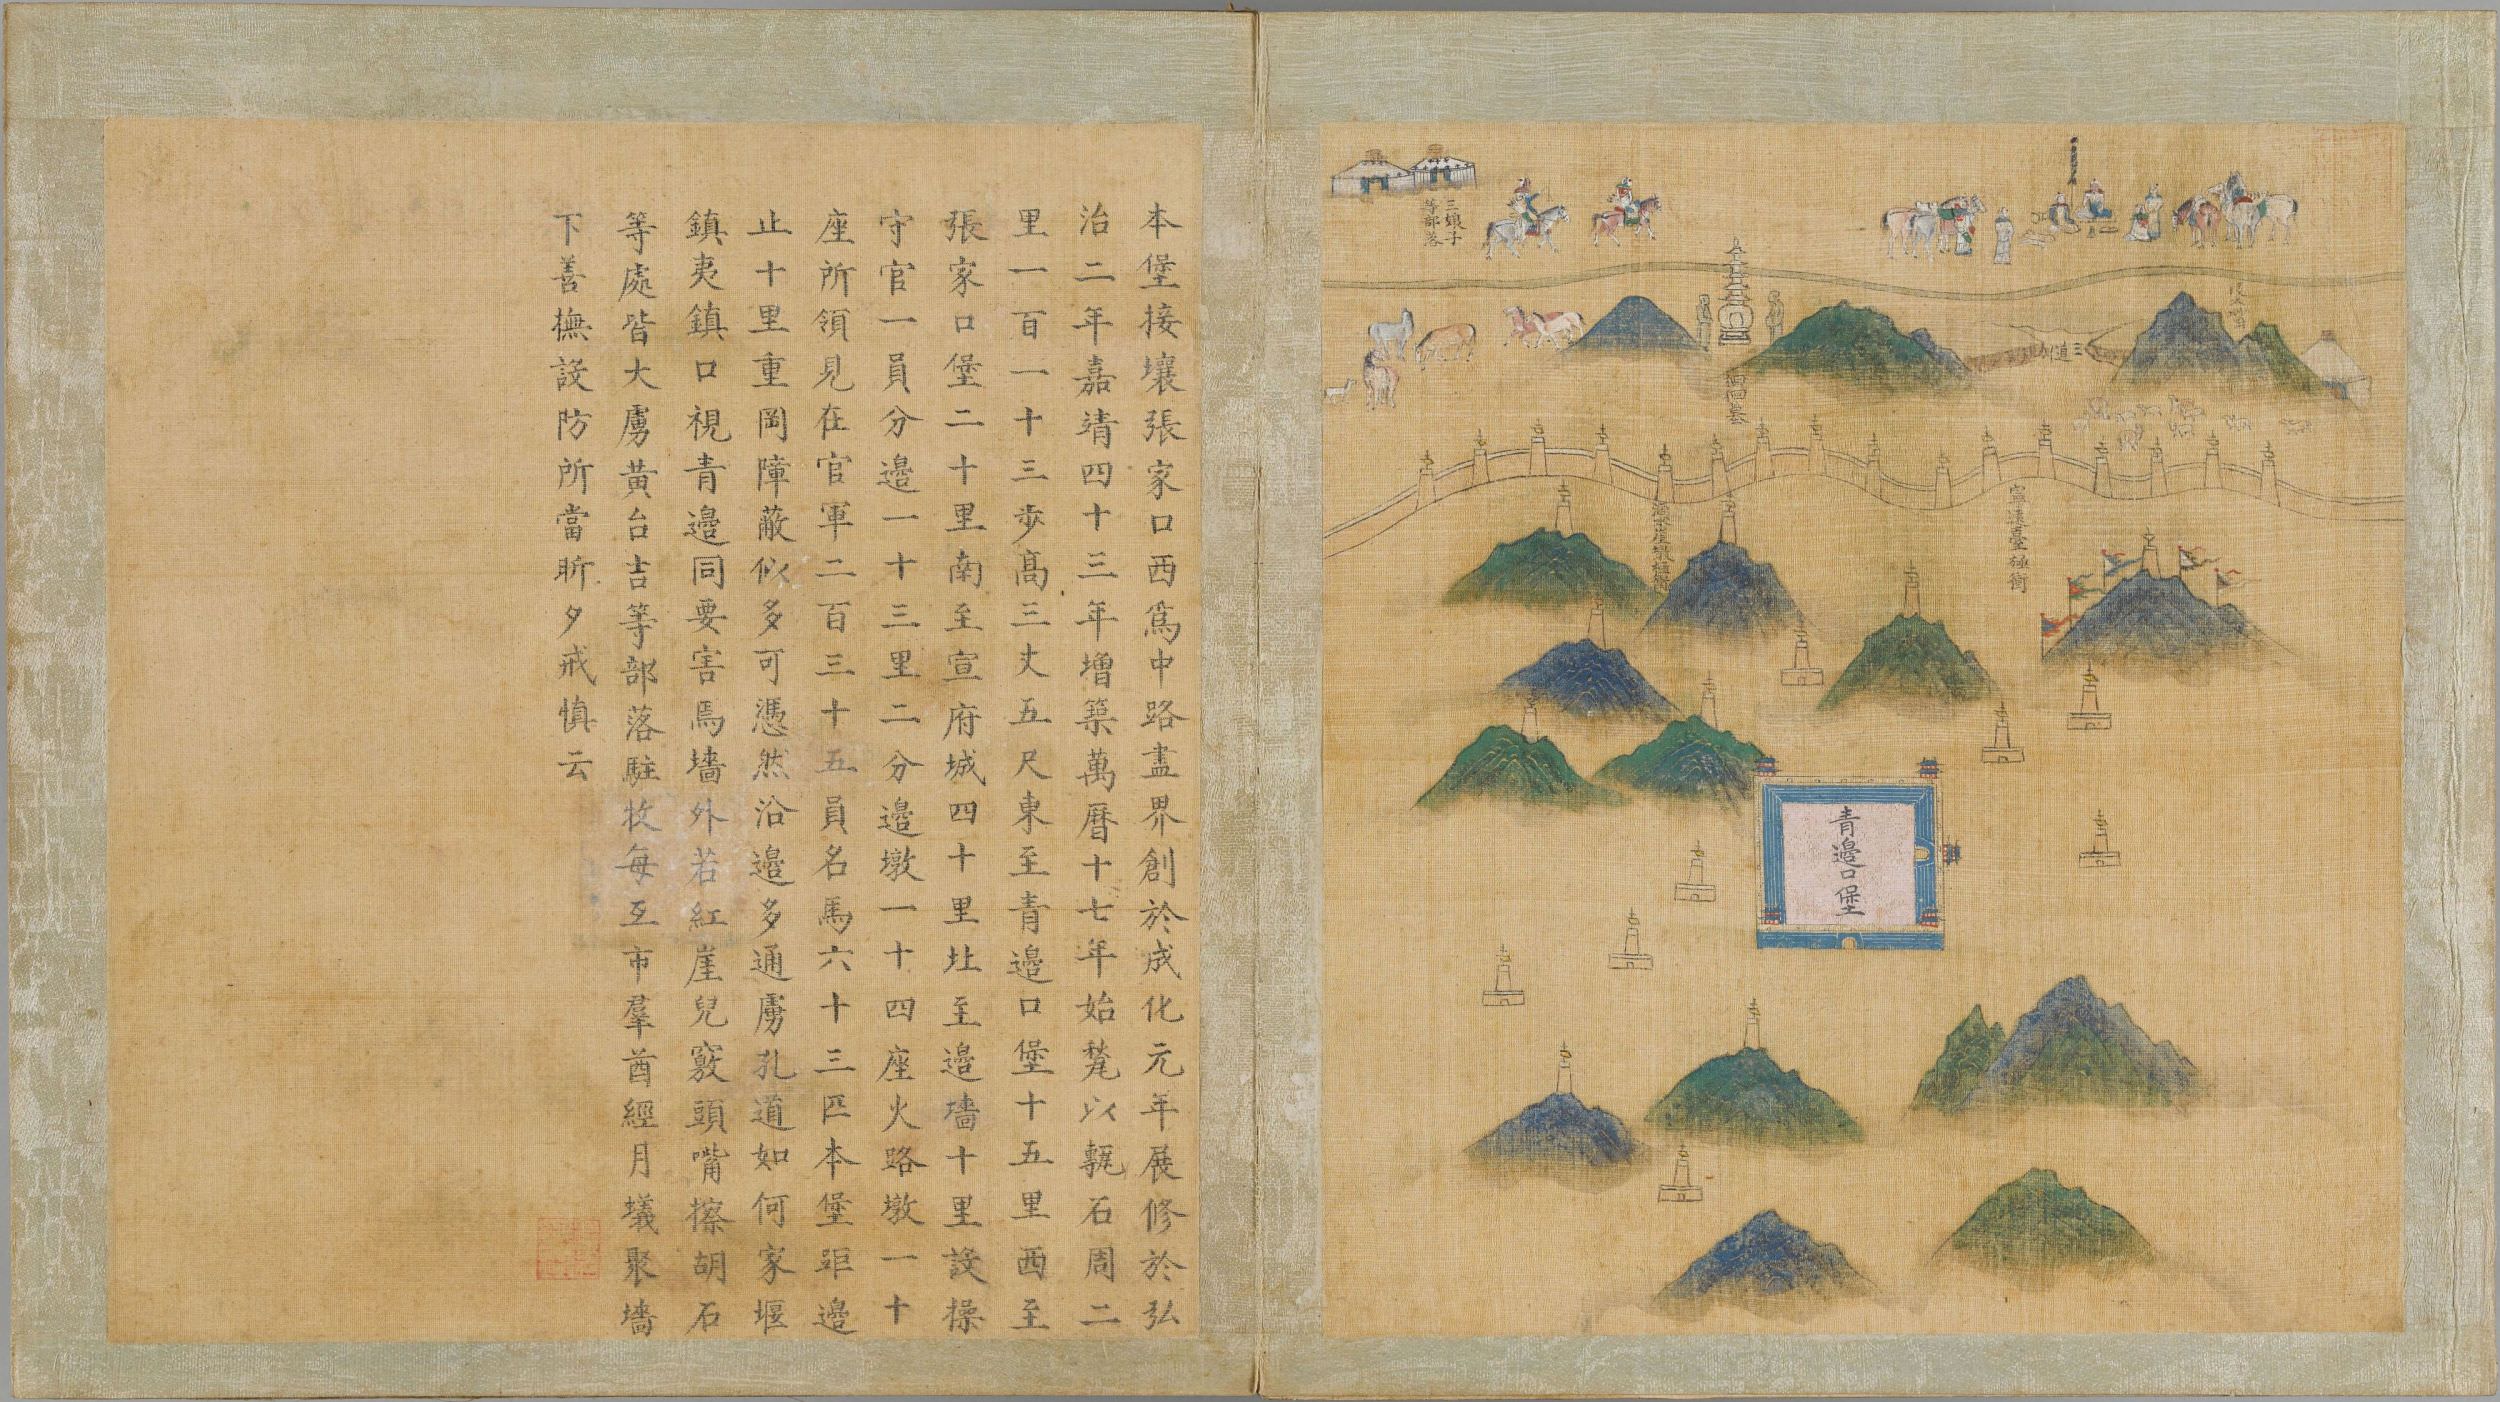 本堡接壤張家口西為中路盡界創於成化元年展修於弘
治二年嘉靖四十三年增築萬曆十七年始甃以甎石周二
里一百一十三步高三丈五尺東至青邊口堡十五里西至
張家口堡二十里南至宣府城四十里北至邊墻十里設操
守官一員分邊一十三里二分邊墩一十四座火路墩一十
座所領見在官軍二百三十五員名馬六十三匹本堡距邊
止十里重岡障蔽似多可憑然沿邊多通虜孔道如何家堰
鎮夷鎮口視青邊同要害焉墻外若紅崖兒竅頭嘴擦胡石
等處皆大虜黃台吉等部落駐牧每互市羣酋經月蟻聚墻
下善撫設防所當昕夕戒慎云
三娘子
等部落
三道
回回墓
寧遠臺極衝
青邊口堡